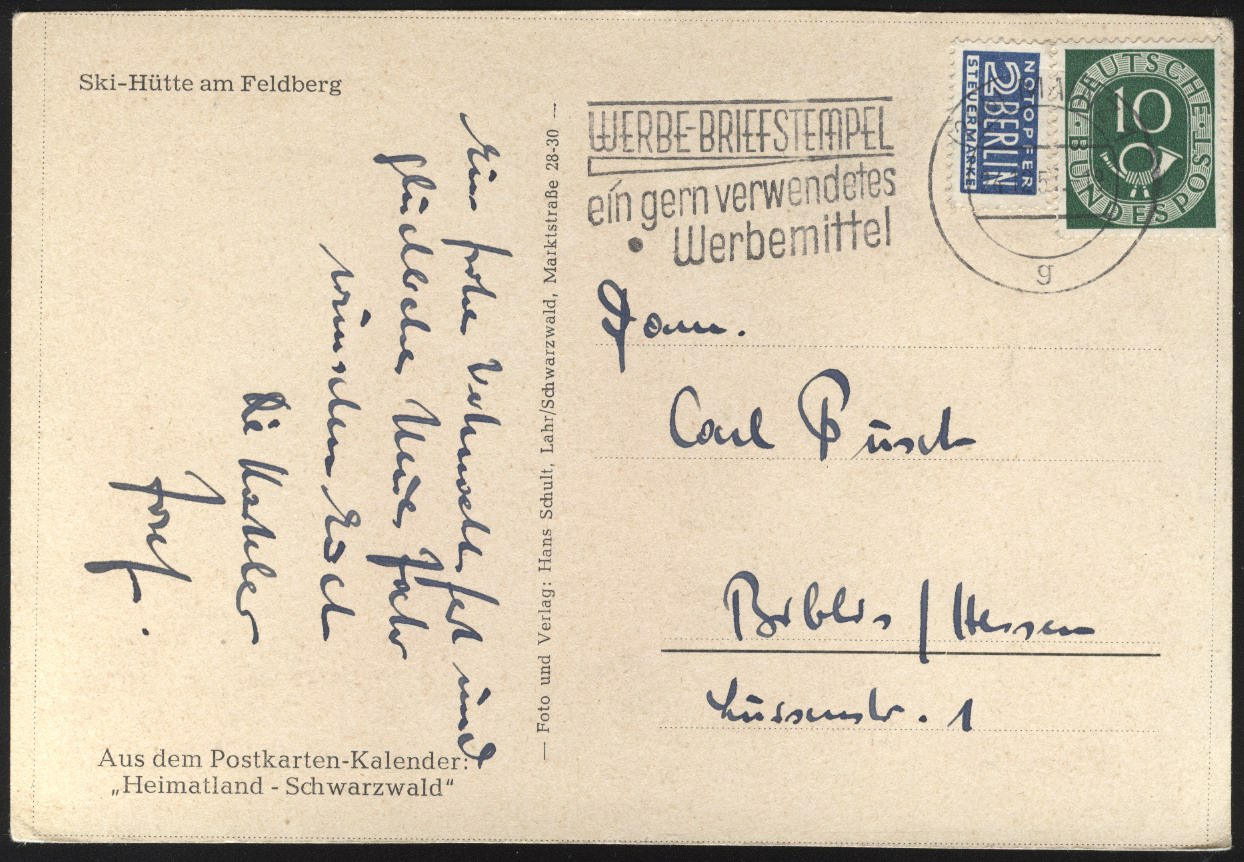 Ski-Hütte am Feldberg
Ein frohes Weihnachtsfest und
glückliches Neues Jahr
wünschen Euch
die
Josef.
Aus dem Postkarten-Kalender:
„Heimatland - Schwarzwald“
— Foto und Verlag: Hans Schult, Lahr/Schwarzwald, Marktstraße 28-30 —
WERBE-BRIEFSTEMPEL
ein gern verwendetes
Werbemittel
NOTOPFER
2 BERLIN
STEUERMARKE
DEUTSCHE BUNDESPOST
10
g
Fam.
Carl Busch
Biblis / Hessen
Luisenstr. 1